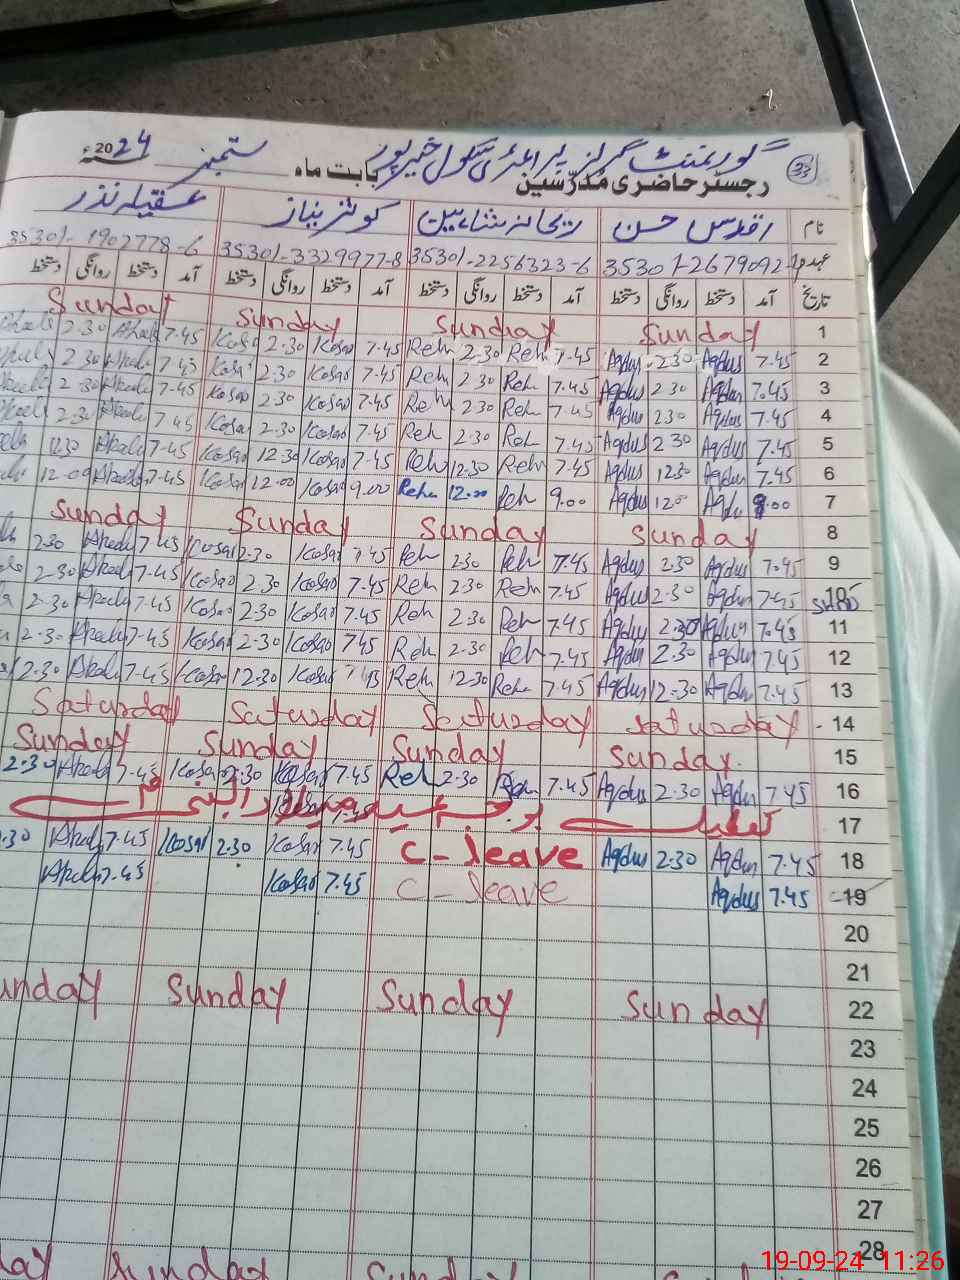 گورنمنٹ گرلز پرائمری سکول خیرپور
33 رجسٹر حاضری مُدرّسین بابت ماہ ستمبر 2024ء
نام اقدس حسن ریحانہ شاہین کوثر نیاز عقیلہ نذر
عہدہ 35301-2679092- 35301-2256323-6 35301-3329977-8 35301-1902778-6
تاریخ آمد دستخط روانگی دستخط آمد دستخط روانگی دستخط آمد دستخط روانگی دستخط آمد دستخط روانگی دستخط
Sunday Sunday Sunday Sunday 1
2.30 Akeela 7.45 Kosar 2.30 Kosar 7.45 Reh 2.30 Reh 7.45 Aqdus 2.30 Aqdus 7.45 2
2.30 Akeela 7.45 Kosar 2.30 Kosar 7.45 Reh 2.30 Reh 7.45 Aqdus 2.30 Aqdus 7.45 3
2.30 Akeela 7.45 Kosar 2.30 Kosar 7.45 Reh 2.30 Reh 7.45 Aqdus 2.30 Aqdus 7.45 4
2.30 Akeela 7.45 Kosar 2.30 Kosar 7.45 Reh 2.30 Reh 7.45 Aqdus 2.30 Aqdus 7.45 5
12.30 Akeela 7.45 Kosar 12.30 Kosar 7.45 Reh 12.30 Reh 7.45 Aqdus 12.30 Aqdus 7.45 6
12.00 Akeela 7.45 Kosar 12.00 Kosar 9.00 Reh 12.00 Reh 9.00 Aqdus 12.0 Aqdus 9.00 7
Sunday Sunday Sunday Sunday 8
2.30 Akeela 7.45 Kosar 2.30 Kosar 7.45 Reh 2.30 Reh 7.45 Aqdus 2.30 Aqdus 7.45 9
2.30 Akeela 7.45 Kosar 2.30 Kosar 7.45 Reh 2.30 Reh 7.45 Aqdus 2.30 Aqdus 7.45 10
2.30 Akeela 7.45 Kosar 2.30 Kosar 7.45 Reh 2.30 Reh 7.45 Aqdus 2.30 Aqdus 7.45 11
2.30 Akeela 7.45 Kosar 2.30 Kosar 7.45 Reh 2.30 Reh 7.45 Aqdus 2.30 Aqdus 7.45 12
12.30 Akeela 7.45 Kosar 12.30 Kosar 7.45 Reh 12.30 Reh 7.45 Aqdus 12.30 Aqdus 7.45 13
Saturday Saturday Saturday Saturday 14
Sunday Sunday Sunday Sunday 15
2.30 Akeela 7.45 Kosar 2.30 Kosar 7.45 Reh 2.30 Reh 7.45 Aqdus 2.30 Aqdus 7.45 16
تعطیل بوجہ عید میلاد النبی 17
2.30 Akeela 7.45 Kosar 2.30 Kosar 7.45 C-leave Aqdus 2.30 Aqdus 7.45 18
Akeela 7.45 Kosar 7.45 C-leave Aqdus 7.45 19
20
21
Sunday Sunday Sunday Sunday 22
23
24
25
26
27
28
Sunday Sunday
19-09-24 11:26